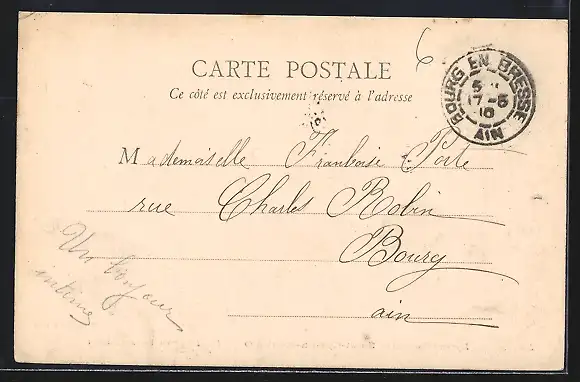 6
CARTE POSTALE
Ce côté est exclusivement réservé à l'adresse
BOURG EN BRESSE
17-8
10
AIN
Mademoiselle Franboise Porte
rue Charles Robin
Bourg
ain
Un bonjour
intime